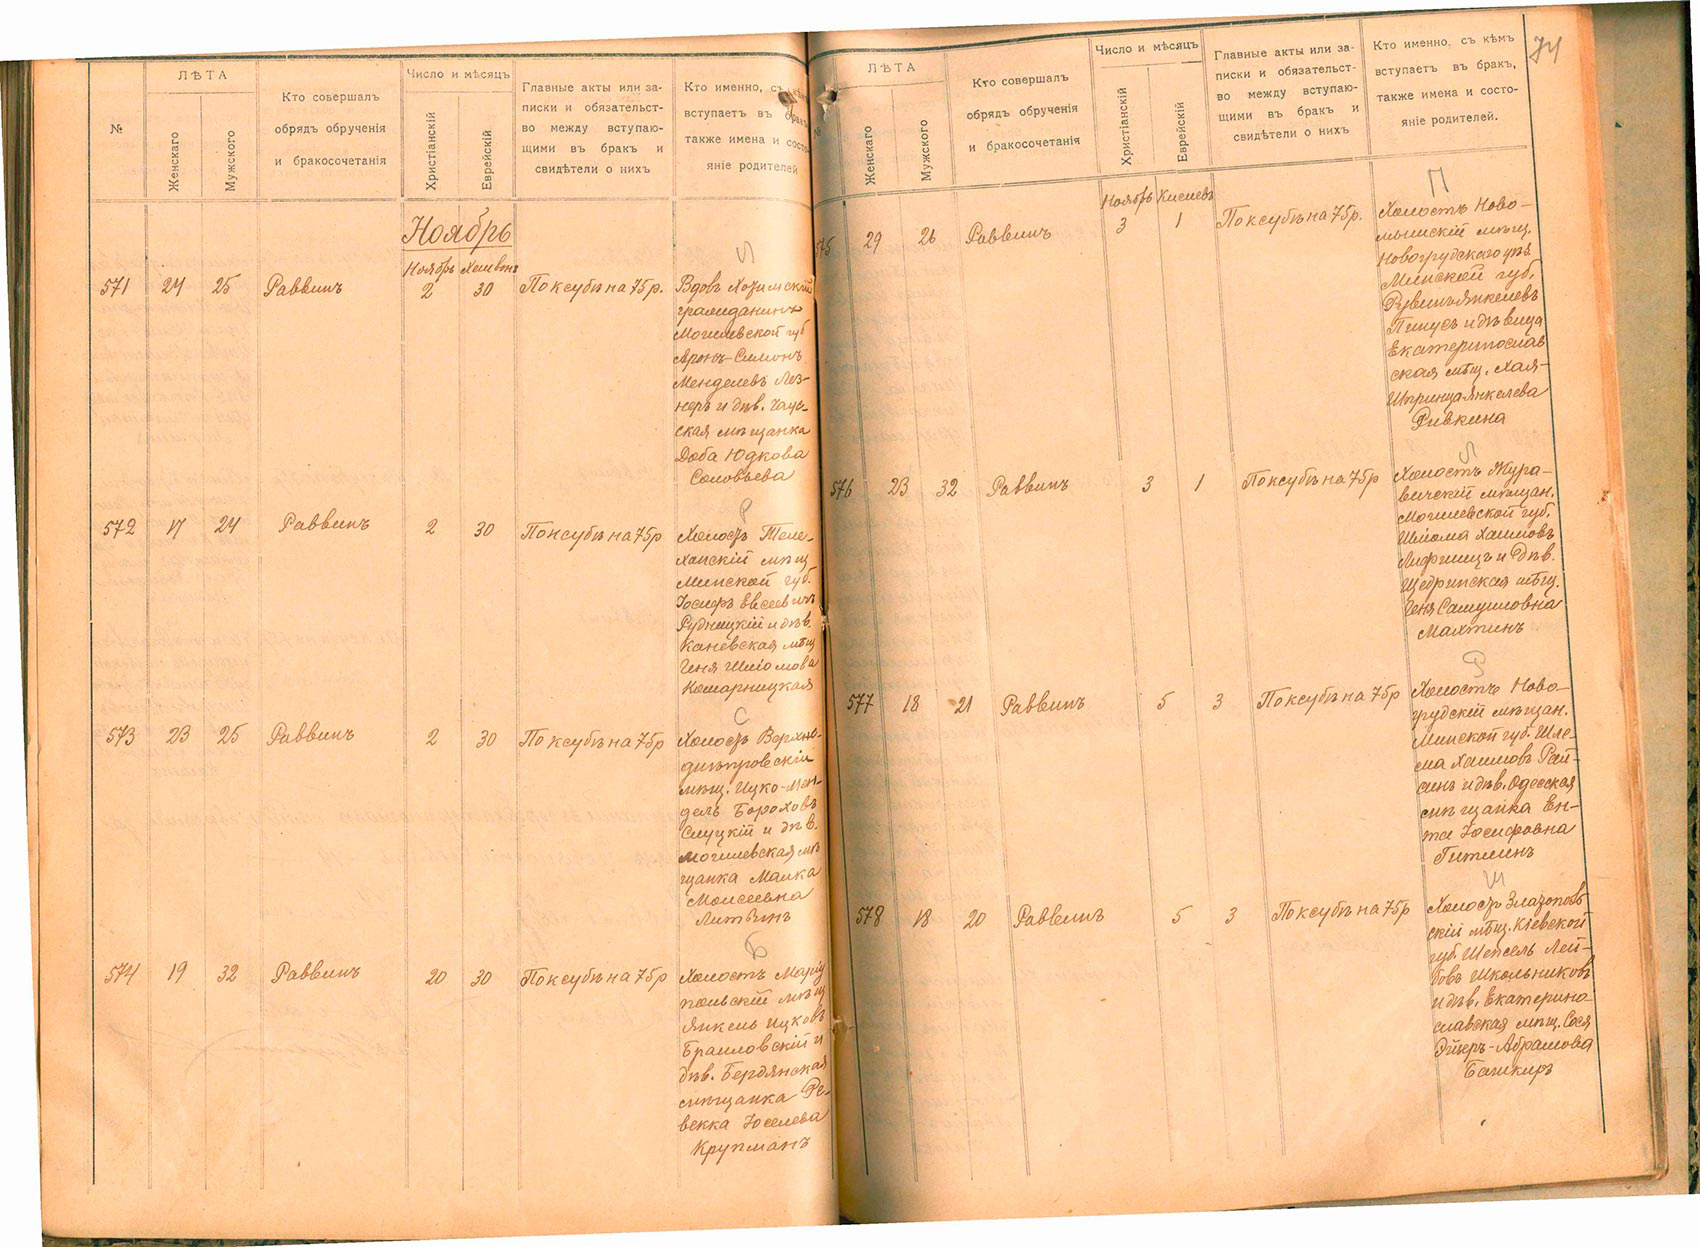 №
ЛѢТА
Женскаго
Мужского
Кто совершалъ
обрядъ обрученія
и бракосочетанія
Число и мѣсяцъ
Христіанскій
Еврейскій
Главные акты или за-
писки и обязательст-
во между вступаю-
щими въ бракъ и
свидѣтели о нихъ
Кто именно, съ кѣмъ
вступаетъ въ бракъ,
также имена и состо-
яніе родителей
Ноябрь
Ноябрь Хешвонъ
571 24 25 Раввинъ 2 30 По ксубѣ на 75р.
Л
Вдовъ Хотимскій
гражданинъ
Могилевской губ
Аронъ-Симонъ
Менделевъ Лез-
неръ и дѣв. Чаус-
ская мѣщанка
Доба Юдкова
Соловьева
572 17 24 Раввинъ 2 30 По ксубѣ на 75р
Р
Холостъ Теле-
ханскій мѣщ
Минской губ.
Іосифъ Евсеевичъ
Рудницкій и дѣв.
Каневская мѣщ
Геня Шломова
Комарницкая
573 23 25 Раввинъ 2 30 По ксубѣ на 75р
С
Холостъ Верхно-
днѣпровскій
мѣщ. Ицко-Мен-
дель Бороховъ
Слуцкій и дѣв.
Могилевская мѣ
щанка Малка
Моисеевна
Литвинъ
574 19 32 Раввинъ 20 30 По ксубѣ на 75р
Б
Холостъ Маріу
польскій мѣщ
Янкель Ицковъ
Браиловскій и
дѣв. Бердянская
мѣщанка Ре-
векка Іоселева
Крупманъ
74
№
ЛѢТА
Женскаго
Мужского
Кто совершалъ
обрядъ обрученія
и бракосочетанія
Число и мѣсяцъ
Христіанскій
Еврейскій
Главные акты или за-
писки и обязательст-
во между вступаю-
щими въ бракъ и
свидѣтели о нихъ
Кто именно, съ кѣмъ
вступаетъ въ бракъ,
также имена и состо-
яніе родителей.
Ноябрь Кислевъ
575 29 26 Раввинъ 3 1 По ксубѣ на 75р.
П
Холостъ Ново-
мышскій мѣщ.
Новогрудскаго уѣз
Минской губ.
Рувинъ Янкелевъ
Пинусъ и дѣвица
Екатеринослав
ская мѣщ. Хая-
Шпринца Янкелева
Ривкина
576 23 32 Раввинъ 3 1 По ксубѣ на 75р
Л
Холостъ Жура-
вичскій мѣщан.
Могилевской губ.
Шлома Хаимовъ
Лифшицъ и дѣв.
Щедринская мѣщ.
Геня Самуиловна
Махтинъ
577 18 21 Раввинъ 5 3 По ксубѣ на 75р
Р
Холостъ Ново-
грудскій мѣщан.
Минской губ. Шле-
ма Хаимовъ Рай-
́синъ и дѣв. Одесская
мѣщанка Ен-
та Іосифовна
Гитлинъ
578 18 20 Раввинъ 5 3 По ксубѣ на 75р
Ш
Холостъ Златопов
скій мѣщ. Кіевской
губ. Шепсель Лей-
бовъ Школьниковъ
и дѣв. Екатерино-
славская мѣщ. Сося
Эйдеръ-Абрамова
Башкиръ